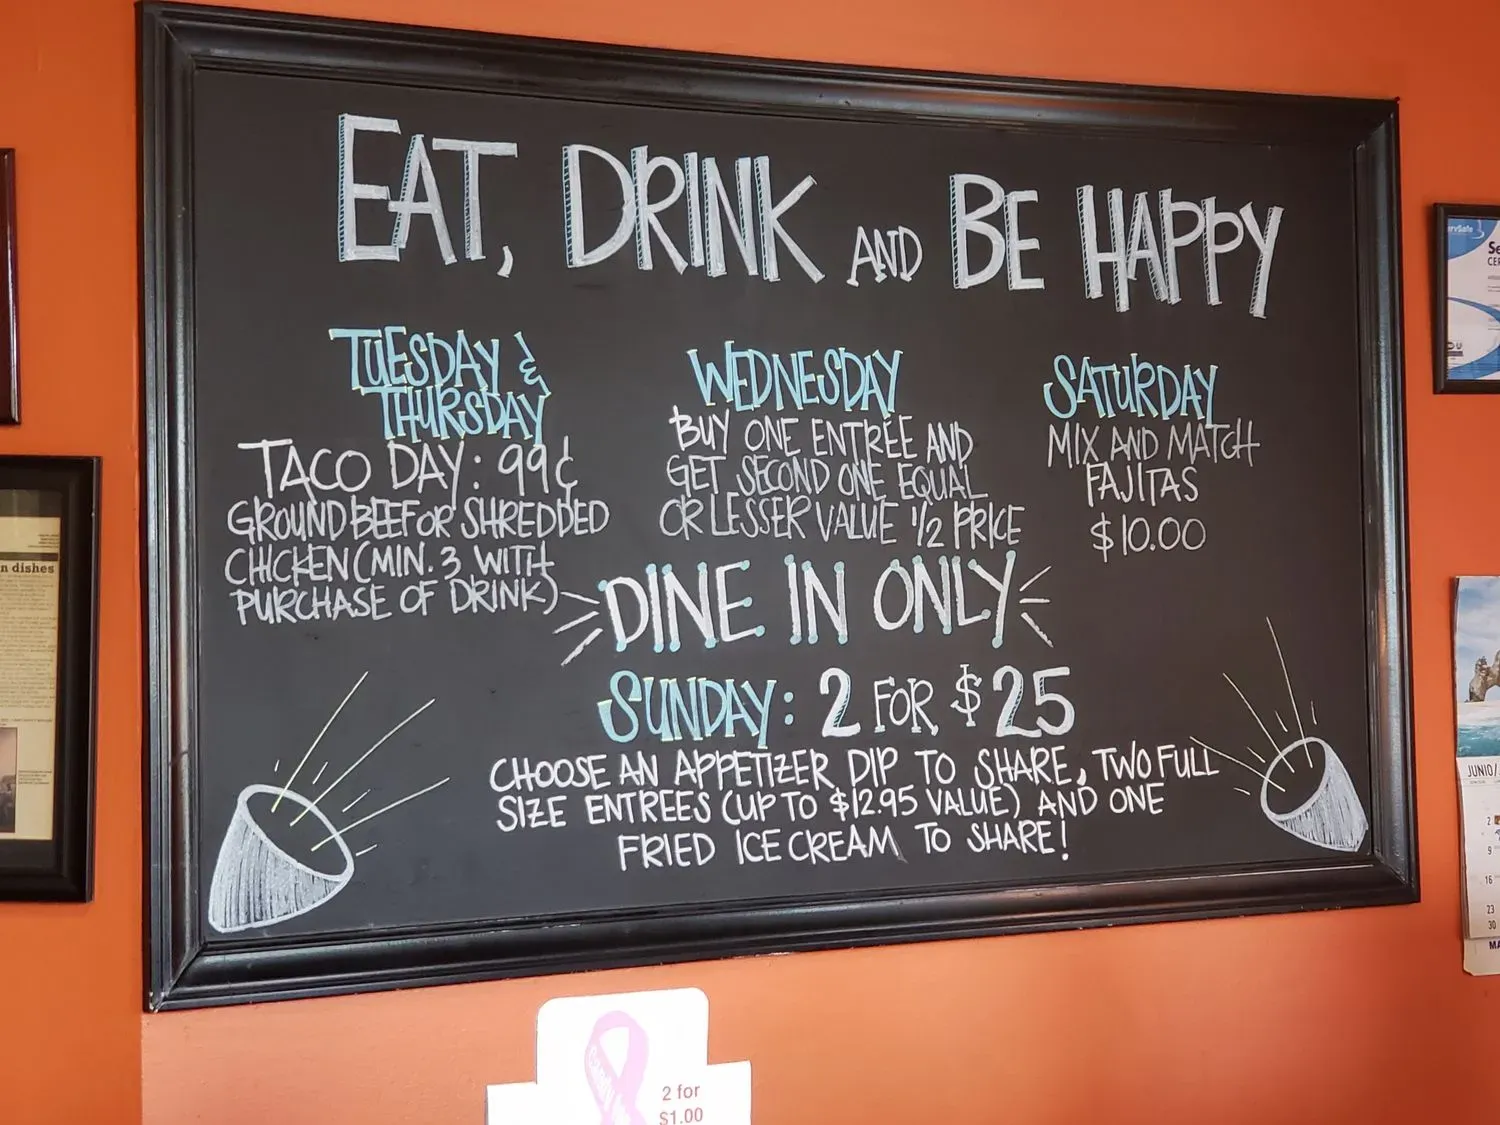 EAT, DRINK AND BE HAPPY
TUESDAY &
THURSDAY
TACO DAY: 99¢
GROUND BEEF OR SHREDDED
CHICKEN (MIN. 3 WITH
PURCHASE OF DRINK)
WEDNESDAY
BUY ONE ENTRÉE AND
GET SECOND ONE EQUAL
OR LESSER VALUE 1/2 PRICE
SATURDAY
MIX AND MATCH
FAJITAS
$10.00
DINE IN ONLY
SUNDAY: 2 FOR $25
CHOOSE AN APPETIZER DIP TO SHARE, TWO FULL
SIZE ENTREES (UP TO $12.95 VALUE) AND ONE
FRIED ICE CREAM TO SHARE!
2 for
$1.00
n dishes
JUNIO/
2
9
16
23
30